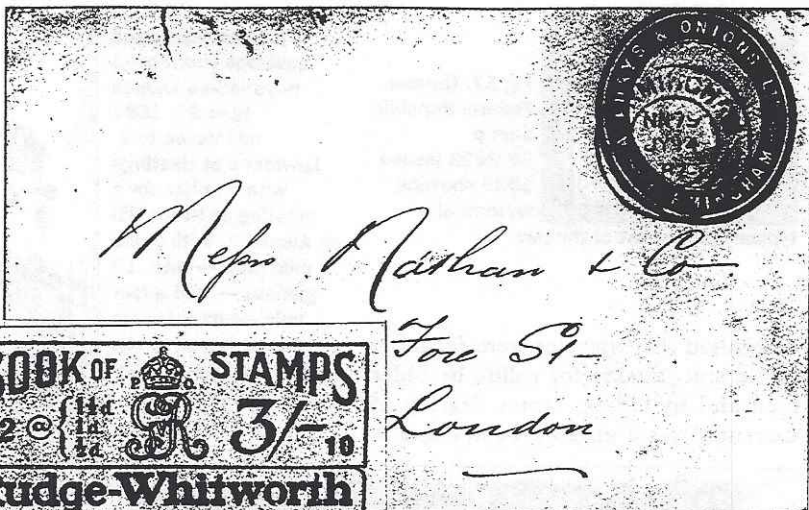 & ONIONS
BIRMINGHAM
Messrs Nathan & Co
Fore St—
London
BOOK OF STAMPS
P O
2 @ { 1½d
1d
½d
GR
3/-
10
Rudge-Whitworth